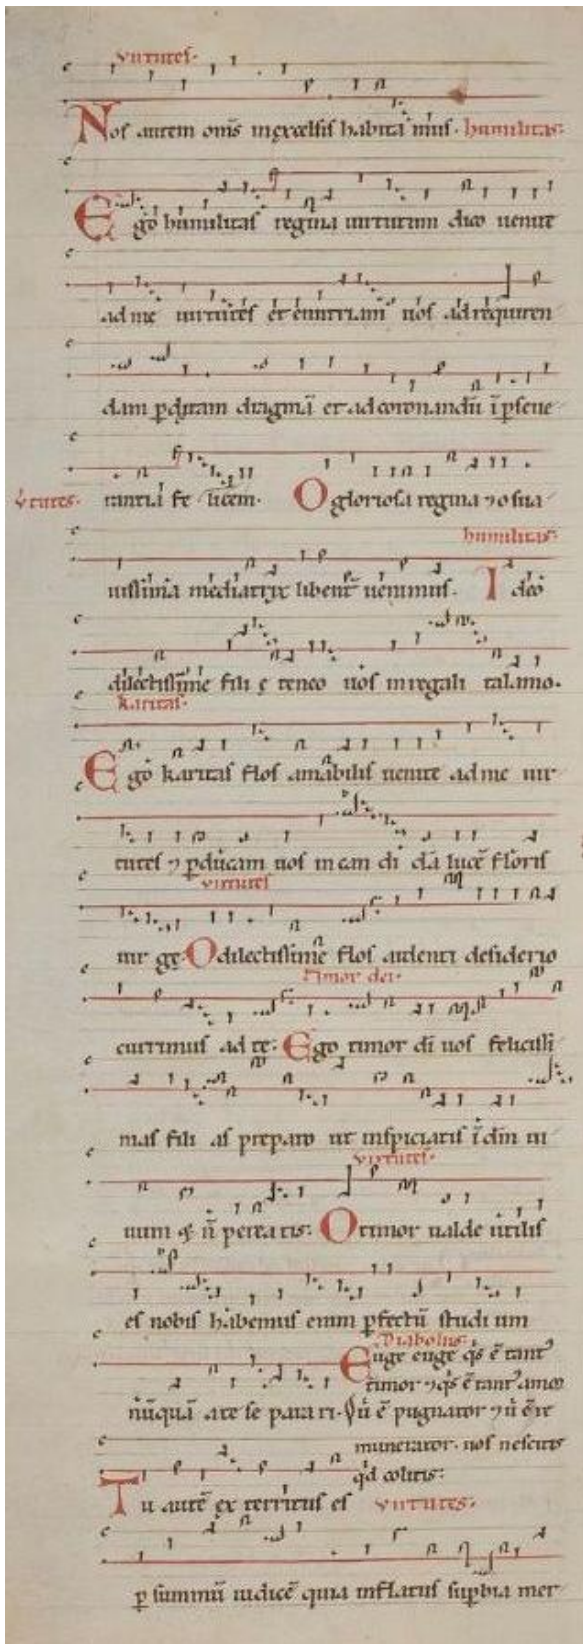 virtutes.
Nos autem om̄s in excelsis habita mus. humilitas.
Ego humilitas regina uirtutum dico uenite
ad me uirtutes et enutriam uos ad requiren
dam p̱ditam dragmā et ad coronandū ī p̱seue
v̓tutes. rantia fe licem. O gloriosa regina ⁊ o sua
humilitas.
uissima mediatrix libent᷑ uenimus. I deo
dilectissime fili ę teneo uos in regali talamo.
karitas.
Ego karitas flos amabilis uenite ad me uir
tutes ⁊ p̱ducam uos in can di dā lucē floris
virtutes
uir gę. O dilectissime flos ardenti desiderio
Timor dei.
currimus ad te. Ego timor dī uos felicissi
mas fili as preparo ut inspiciatis ī dm̄ ui
virtutes.
uum & n̄ pereatis. O timor ualde utilis
es nobis habemus enim p̱fectū studi um
Diabolus.
Euge euge qͥs ē tant᷒
timor ⁊ qͥs ē tant᷒ amor
nūquā a te se parari. V̓ ē pugnator ⁊ v̓ ē re
munerator. uos nescitis
qͥd colitis.
Tu autē ex territus es virtutes.
p̱ summū iudicē quia inflatus sup̱bia mer